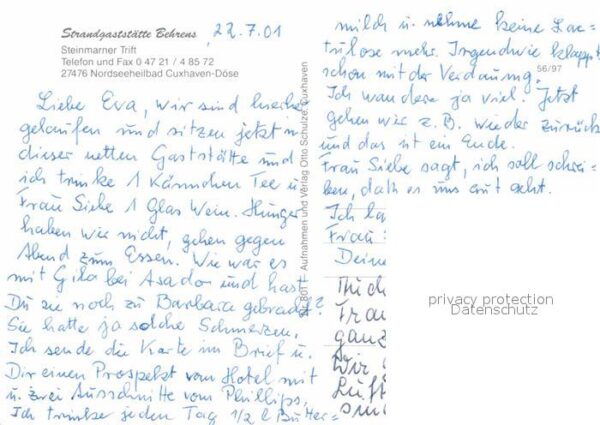 Strandgaststätte Behrens, 22.7.01
Steinmarner Trift
Telefon und Fax 0 47 21 / 4 85 72
27476 Nordseeheilbad Cuxhaven-Döse
Liebe Eva, wir sind hierher
gelaufen und sitzen jetzt in
dieser netten Gaststätte und
ich trinke 1 Kännchen Tee u.
Frau Siebe 1 Glas Wein. Hunger
haben wir nicht, gehen gegen
Abend zum Essen. Wie war es
mit Gila bei Asador und hast
Du sie noch zu Barbara gebracht?
Sie hatte ja solche Schmerzen.
Ich sende die Karte im Brief u.
Dir einen Prospekt vom Hotel mit
u. zwei Ausschnitte vom Phillips.
Ich trinke jeden Tag 1/2 l Butter=
Aufnahmen und Verlag Otto Schulze, Cuxhaven
milch u. nehme keine Lac=
tulose mehr. Irgendwie klappt
schon mit der Verdauung.
56/97
Ich wandere ja viel. Jetzt
gehen wir z.B. wieder zurück
und das ist ein Ende.
Frau Siebe sagt, ich soll schrei=
ben, daß es uns gut geht.
Ich
Frau
Deine
Frau
ganz
Wir
Luft
privacy protection
Datenschutz